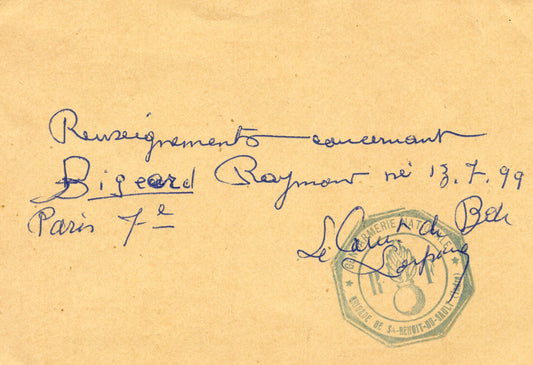 Renseignements concernant
Bigeard Raymond né 13.7.99
Paris 7e
Le Com du
GENDARMERIE NATIONALE
R F
BRIGADE DE St-BENOIT-DU-SAULT (Indre)